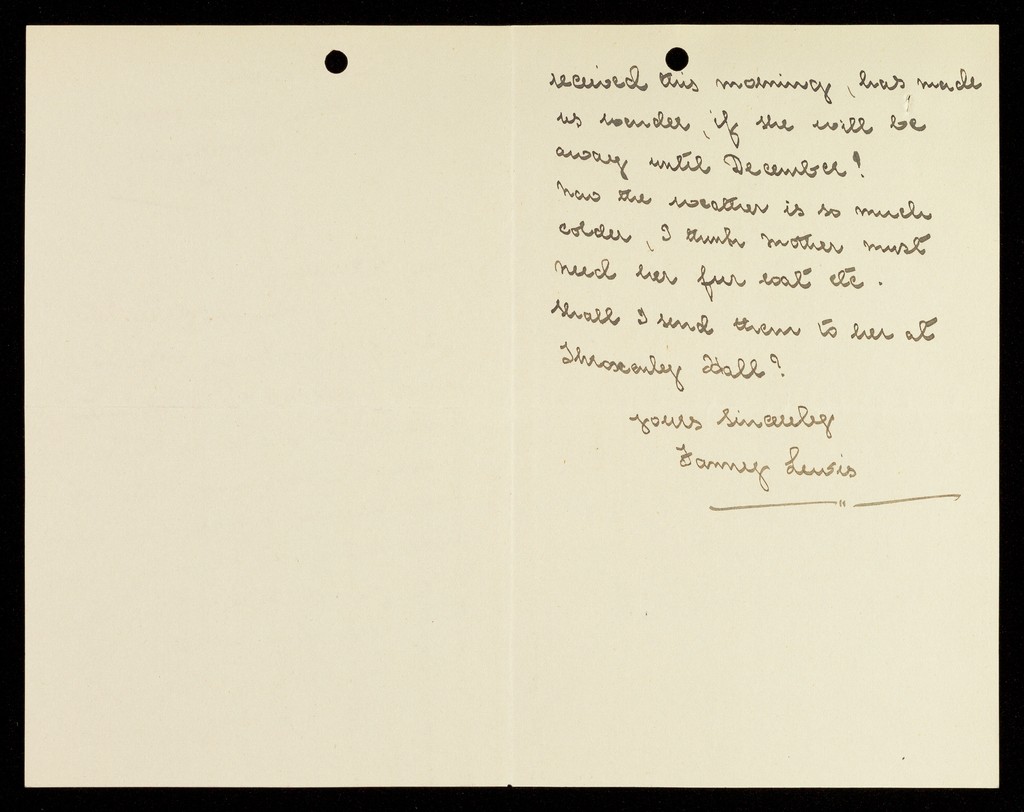 received this morning, has made
us wonder, if she will be
away until December!
Now the weather is so much
colder, I think Mother must
need her fur coat etc.
Shall I send them to her at
Hall?
yours Sincerely
Fanny Lewis